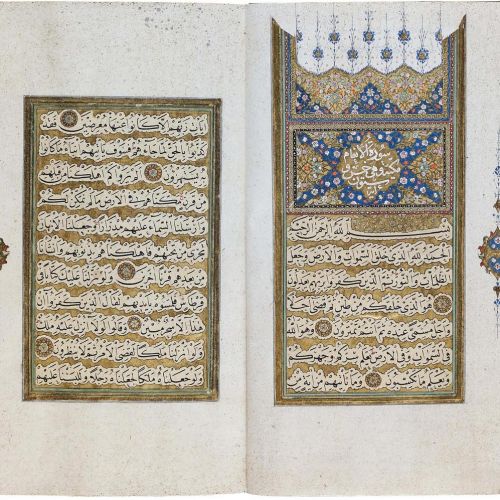 سورة الانعام
بسم الله الرحمن الرحيم
الحمد لله الذي خلق السموات والارض وجعل
الظلمات والنور ثم الذين كفروا بربهم يعدلون
هو الذي خلقكم من طين ثم قضى اجلا
واجل مسمى عنده ثم انتم تمترون وهو الله
في السموات وفي الارض يعلم سركم وجهركم
ويعلم ما تكسبون وما تأتيهم من آية من
آيات ربهم الا كانوا عنها معرضين فقد
كذبوا بالحق لما جاءهم فسوف يأتيهم انباء ما كانوا
به يستهزؤن الم يروا كم اهلكنا من قبلهم
من قرن مكناهم في الارض ما لم نمكن لكم
وارسلنا السماء عليهم مدرارا وجعلنا الانهار
تجري من تحتهم فاهلكناهم بذنوبهم وانشأنا
من بعدهم قرنا آخرين ولو نزلنا عليك كتابا
في قرطاس فلمسوه بايديهم لقال الذين كفروا ان
هذا الا سحر مبين وقالوا لولا انزل عليه ملك
ولو انزلنا ملكا لقضي الامر ثم لا ينظرون
ولو جعلناه ملكا لجعلناه رجلا وللبسنا عليهم